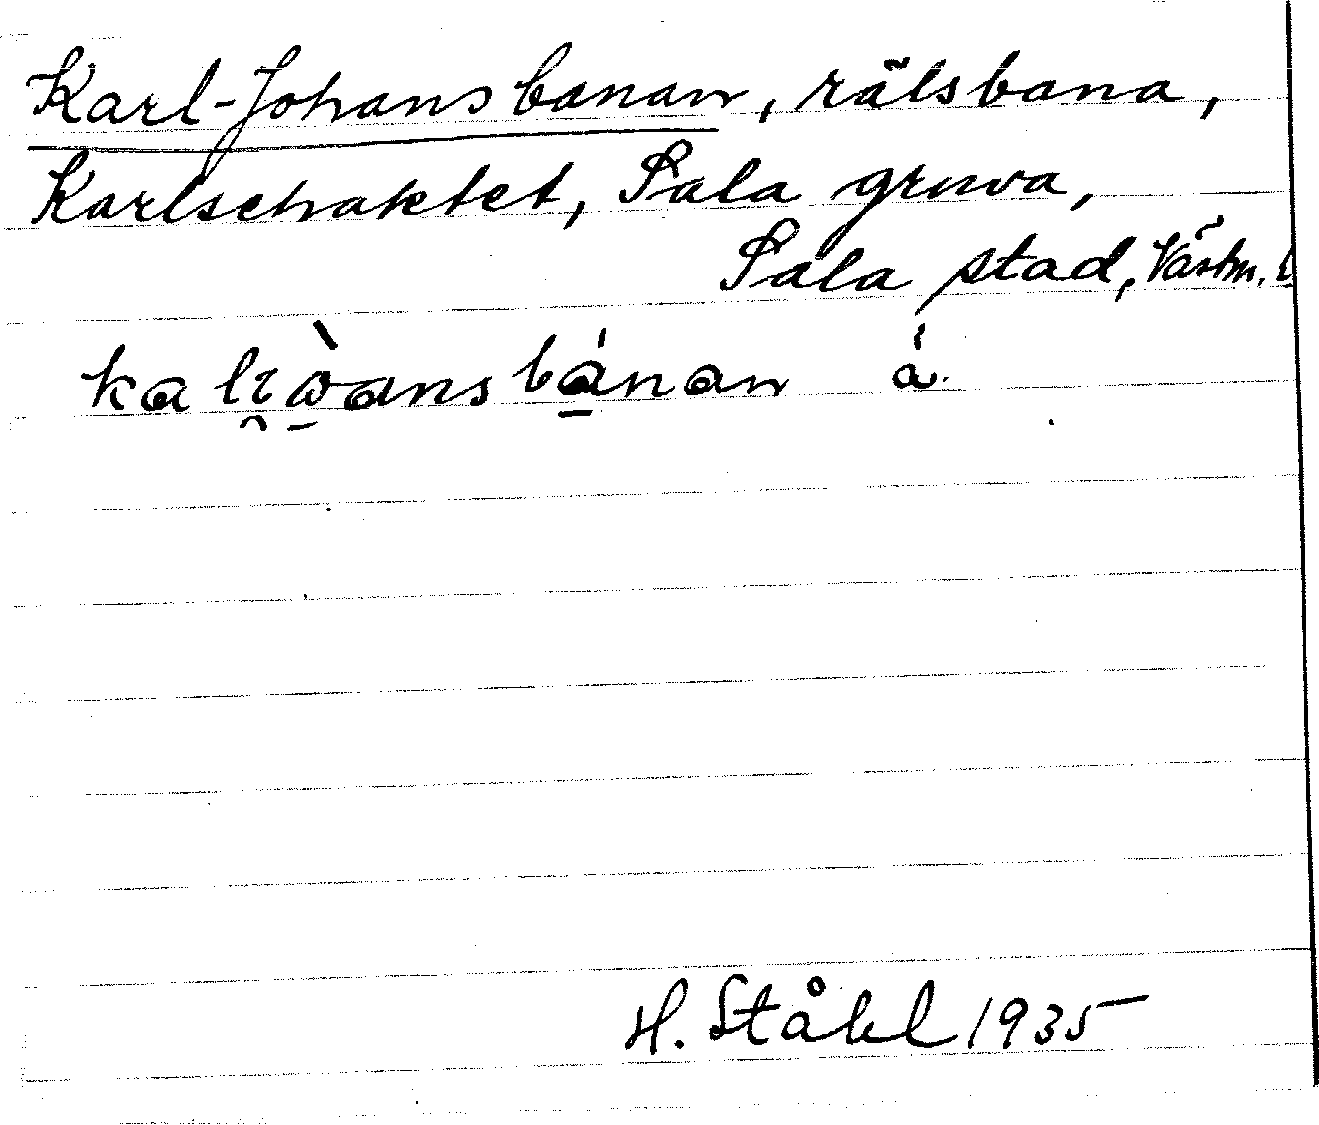 Karl-Johansbanan, rälsbana,
Karlschaktet, Sala gruva,
Sala stad, Västm. l
bánan á.
H. Ståhl 1935